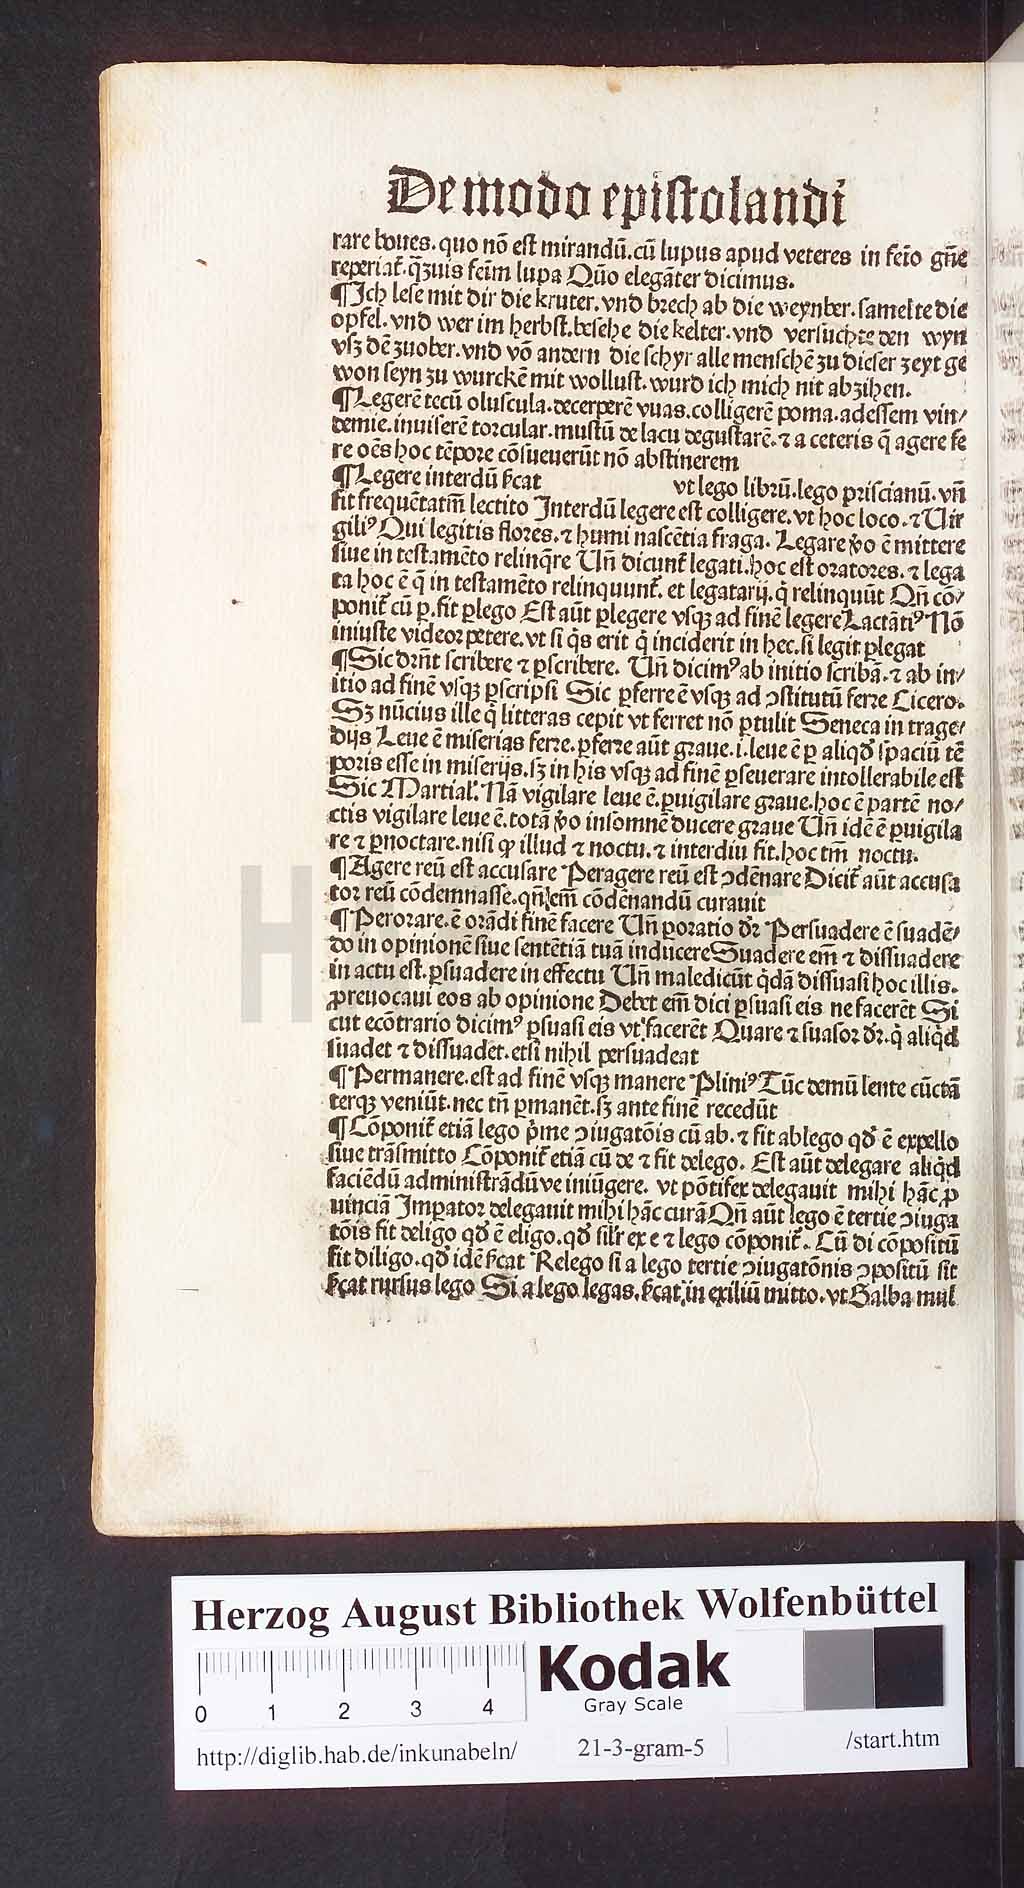 De modo epistolandi
rare boues. quo nõ est mirandũ. cũ lupus apud veteres in feĩo gñe
reperiat̃. qᷓzuis feĩm lupa Qũo elegãter dicimus.
¶Ich lese mit dir die kruter. vnd brech ab die weynber. samelte die
opfel. vnd wer im herbst. besehe die kelter. vnd versuchte den wyn
vsz dẽ zuober. vnd võ andern die schyr alle menschẽ zu dieser zeyt ge
won seyn zu wurckẽ mit wollust. wurd ich mich nit abzihen.
¶Legerẽ tecũ oluscula. decerperẽ vuas. colligerẽ poma. adessem vin/
demie. inuiserẽ torcular. mustũ de lacu degustarẽ. ⁊ a ceteris q̃ agere fe
re oẽs hoc tẽpore cõsueuerũt nõ abstinerem
¶Legere interdũ sͥcat vt lego librũ. lego priscianũ. vñ
fit frequẽtatiũ lectito Interdũ legere est colligere. vt hoc loco. ⁊ Uir
giliꝰ Qui legitis flores. ⁊ humi nascẽtia fraga. Legare ꝟo ẽ mittere
siue in testamẽto relinq̃re Uñ dicunt̃ legati. hoc est oratores. ⁊ lega
ta hoc ẽ q̃ in testamẽto relinquunt̃. et legatarij. q̇ relinquũt Qñ cõ/
ponit̃ cũ ꝑ. fit ꝑlego Est aũt ꝑlegere vsqꝫ ad finẽ legere Lactãtiꝰ Nõ
iniuste videor petere. vt si q̇s erit q̇ inciderit in hec. si legit ꝑlegat
¶Sic dr̃nt scribere ⁊ ꝑscribere. Uñ dicimꝰ ab initio scribã. ⁊ ab in/
itio ad finẽ vsqꝫ ꝑscripsi Sic ꝑferre ẽ vsqꝫ ad ↄstitutũ ferre Cicero.
Sꝫ nũcius ille q̇ litteras cepit vt ferret nõ ꝑtulit Seneca in trage/
dijs Leue ẽ miserias ferre. ꝑferre aũt graue. i. leue ẽ ꝑ aliqd̛ spaciũ tẽ
poris esse in miserijs. sꝫ in his vsqꝫ ad finẽ ꝑseuerare intollerabile est
Sic Martial̛. Nã vigilare leue ẽ. ꝑuigilare graue. hoc ẽ partẽ no/
ctis vigilare leue ẽ. totã ꝟo insomnẽ ducere graue Uñ idẽ ẽ ꝑuigila
re ⁊ ꝑnoctare. nisi ꝙ illud ⁊ noctu. ⁊ interdiu fit. hoc tm̃ noctu.
¶Agere reũ est accusare Peragere reũ est ↄdẽnare Dicit̃ aũt accusa
tor reũ cõdemnasse. qñ eũ cõdẽnandũ curauit
¶Perorare. ẽ orãdi finẽ facere Uñ ꝑoratio dr̃ Persuadere ẽ suadẽ/
do in opinionẽ siue sentẽtiã tuã inducere Suadere em̃ ⁊ dissuadere
in actu est. ꝑsuadere in effectu Uñ maledicũt q̇dã dissuasi hoc illis.
ꝓ reuocaui eos ab opinione Debet em̃ dici ꝑsuasi eis ne facerẽt Si
cut ecõtrario dicimꝰ ꝑsuasi eis vt facerẽt Quare ⁊ suasor dr̃. q̇ aliq̇d
suadet ⁊ dissuadet. etsi nihil persuadeat
¶Permanere. est ad finẽ vsqꝫ manere Pliniꝰ Tũc demũ lente cũctã
terqꝫ veniũt. nec tñ ꝑmanẽt. sꝫ ante finẽ recedũt
¶Cõponit̃ etiã lego p̃me ↄiugatõis cũ ab. ⁊ fit ablego qd̛ ẽ expello
siue trãsmitto Cõponit̃ etiã cũ de ⁊ fit delego. Est aũt delegare aliq̇d
faciẽdũ administrãdũ ve iniũgere. vt põtifex delegauit mihi hãc ꝓ
uinciã Imꝑator delegauit mihi hãc curã Qñ aũt lego ẽ tertie ↄiuga
tõis fit deligo qd̛ ẽ eligo. qd̛ silr̃ ex e ⁊ lego cõponit̃. Cũ di cõpositũ
fit diligo. qd̛ idẽ sͥcat Relego si a lego tertie ↄiugatõnis ↄpositũ sit
sͥcat rursus lego Si a lego legas. sͥcat in exiliũ mitto. vt Galba mul
HAB
Herzog August Bibliothek Wolfenbüttel
0 1 2 3 4
Kodak
Gray Scale
http://diglib.hab.de/inkunabeln/
21-3-gram-5
/start.htm